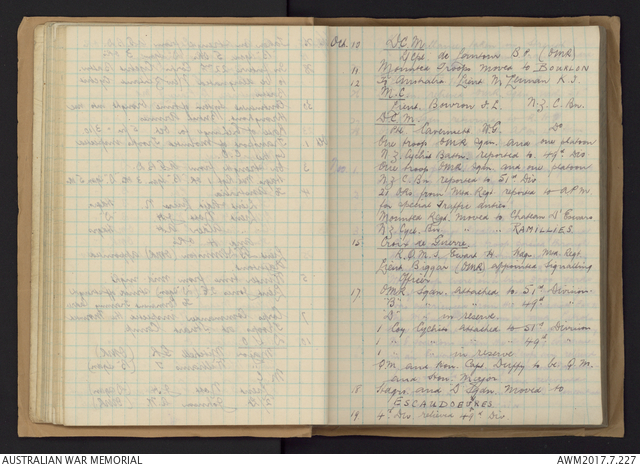 Oct. 10 D.C.M.
Dept. de Ferriere B.P. (OMR)
11 Mounted Troops moved to BOURLON
12 To Australia Lieut. R.J.
M.C.
Lieut. Bowron F.L. N.Z. C. Bn.
D.C.M.
Pte. W.G. Do
One troop OMR Sqn. and one platoon
N.Z. Cyclist Battn. reported to 49th Div.
One troop OMR. Sqdn and one platoon
N.Z. C. Bn reported to 51st Div
21 O.Rs. from Mtd. Regt. reported to A.P.M.
for special Traffic duties
Mounted Regt. moved to Chateau
N.Z. Cyct. Bn " " RAMILLIES.
15 Croix de Guerre.
R.Q.M.S. Ewart Hdqrs Mtd. Regt.
Lieut Biggar (OMR) appointed Signalling
Officer
17. OMR Sqn. attached to 51st Division
"B" " " " 49th "
"D" " in reserve.
1 Coy Cyclists attached to 51st Division
1 " " " " 49th "
1 " " in reserve
Q.M. and Hon. Capt Duffy to be Q.M.
and Hon. Major
18 Hdqrs and D Sqn. moved to
ESCAUDOEUVRES.
19 4th Div. relieve 49th Div.
AUSTRALIAN WAR MEMORIAL
AWM2017.7.227